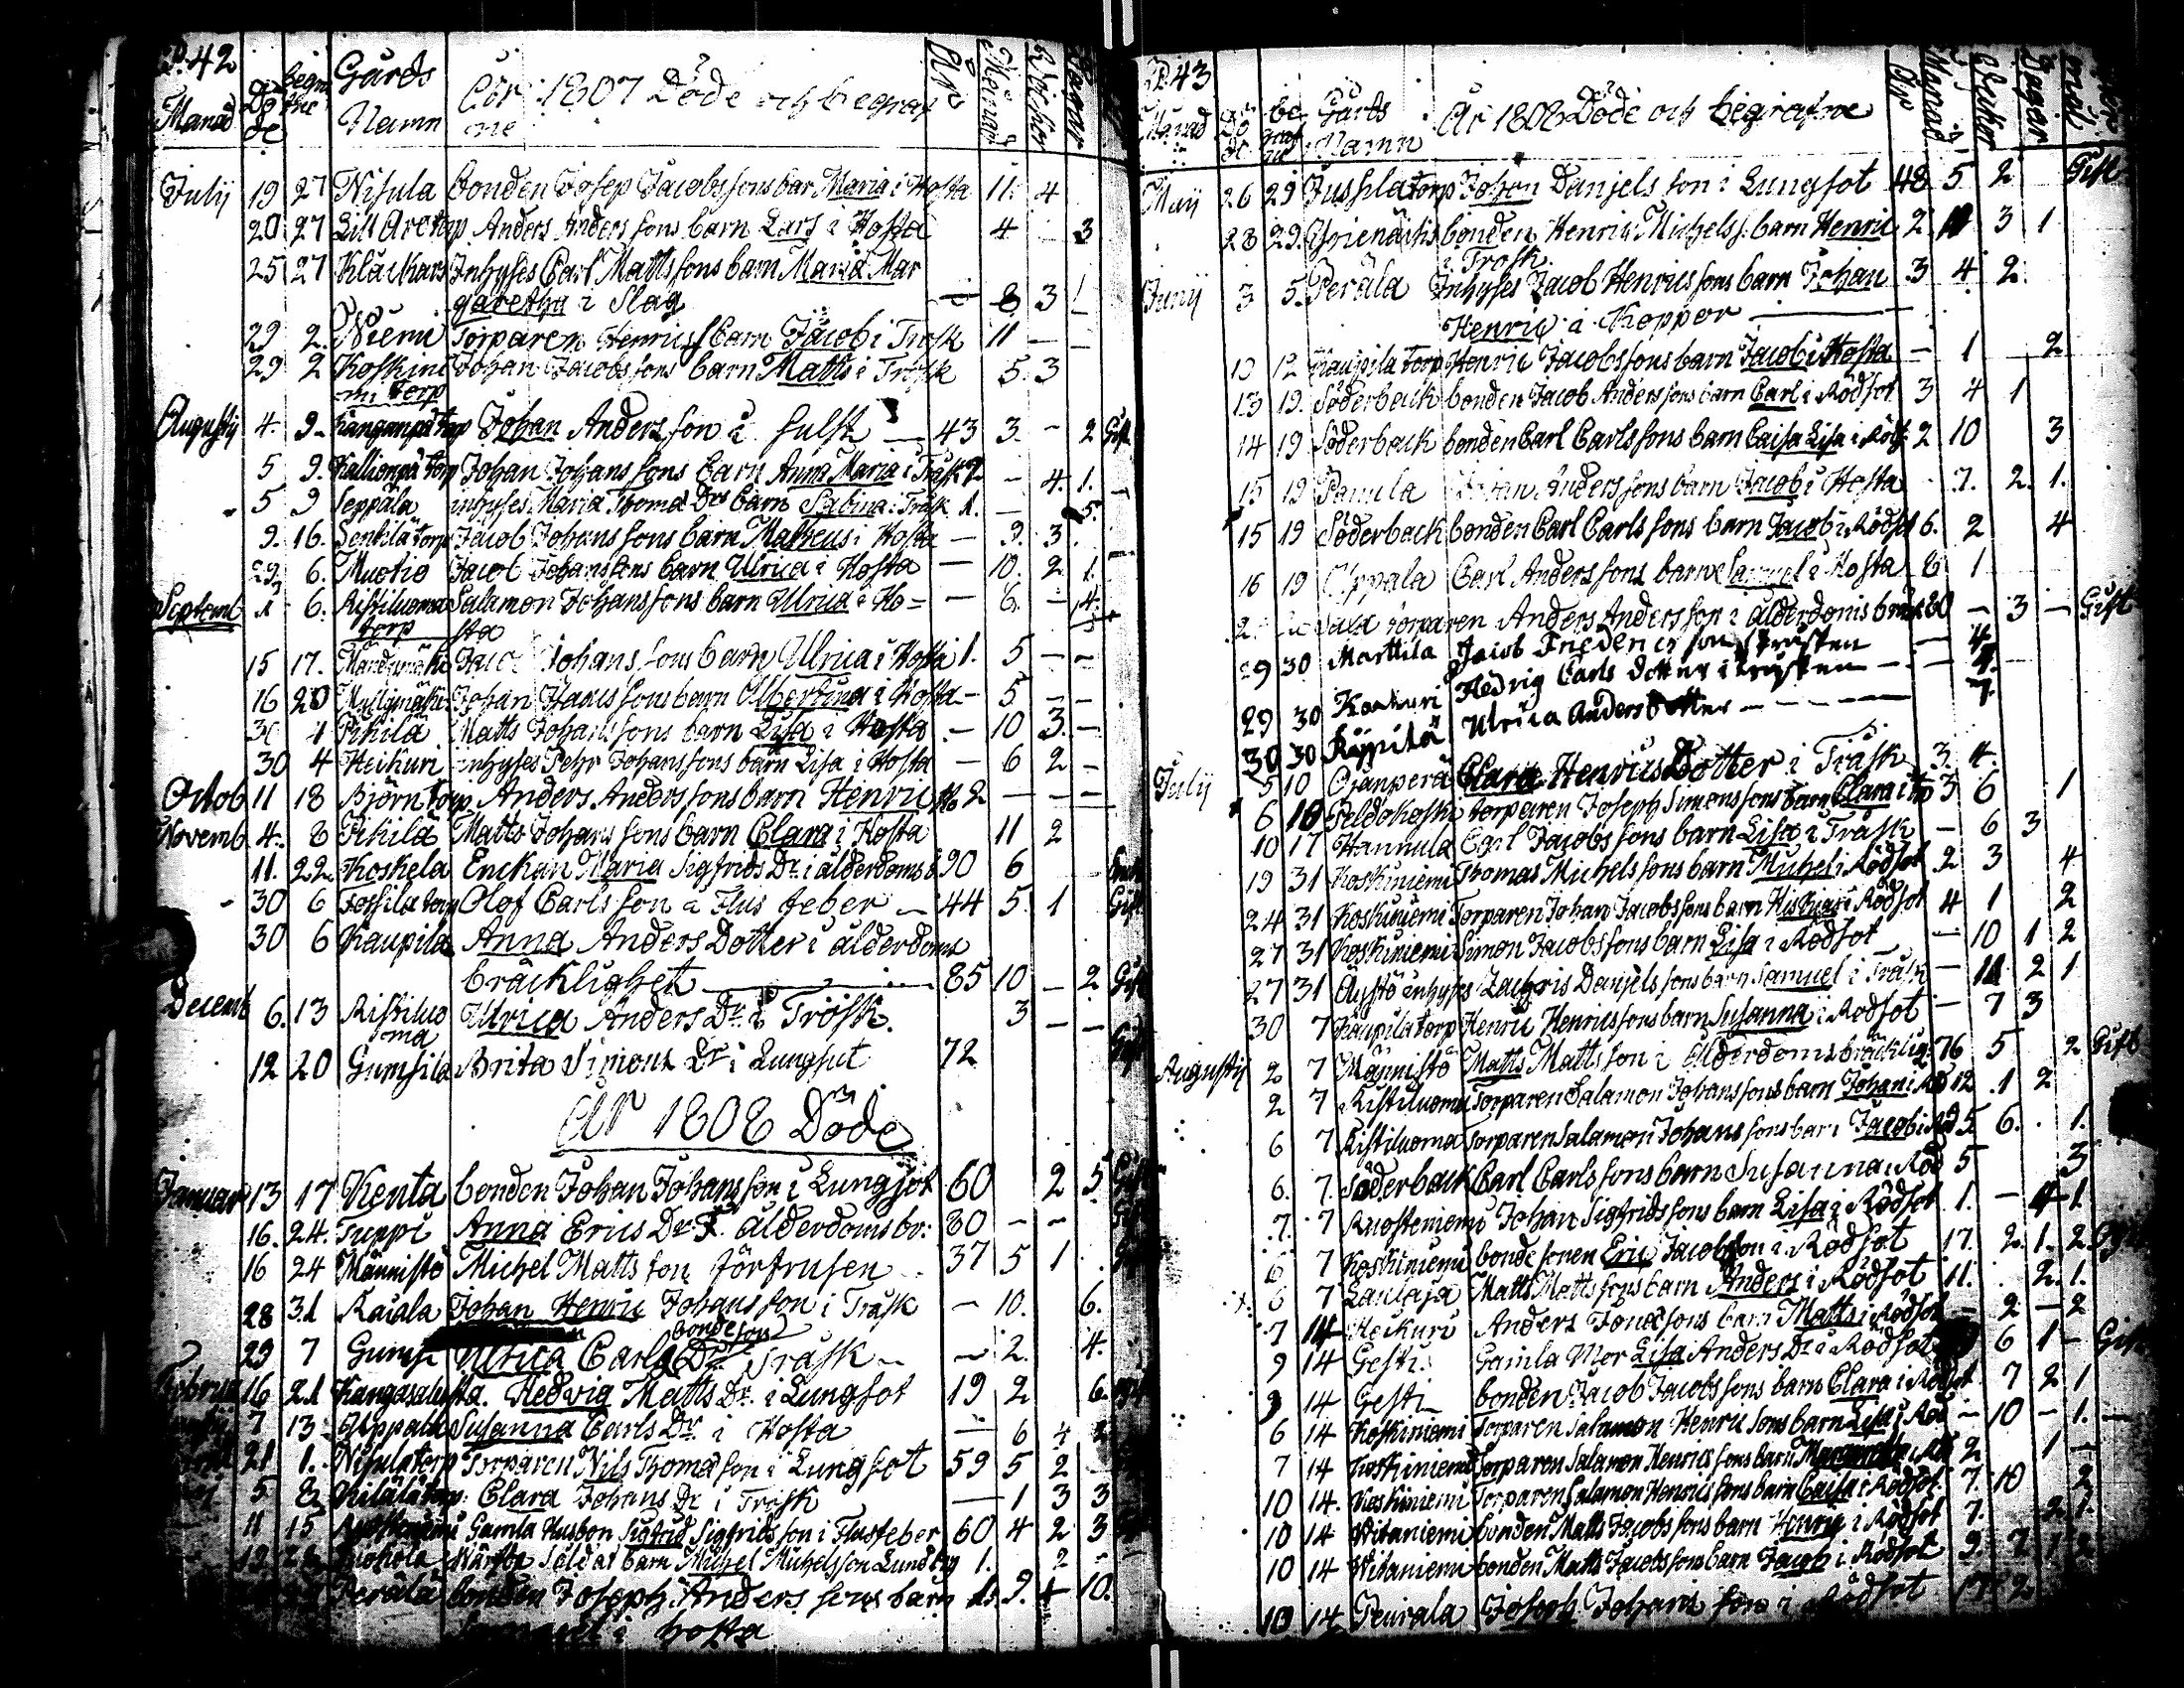 P. 42
Manad Dö de begra fne Gårds Namn År 1807 Döde och begraf ne År Månad Wickor Dagar
July 19 27 Nisula bonden Josep Jacobssons bar Maria i Hosta 11. 4
20 27 Lill Are torp Anders Anderssons barn Lars i Hosta 4 3
25 27 Klackars Inhyses Carl Mattssons barn Maria Mar
garetha i Slag 8 3 1
29 2 Niemi Torparen Henricss barn Jacob i Trosk 11
29 2 Koskine Johan Jacobssons barn Matts i Trosk 5. 3
mi torp
Augusty 4. 9. Kanganpä torp Johan Andersson i hulst 43 3. 2 Gift
5 9. Kallionpä torp Johan Johanssons barn Anna Maria i Trask 2 4. 1.
5 9 Seppälä inhyses Maria Thomæ Drs barn Sabina i Trask 1. 5.
9. 16. Sentilä torp Jacob Johanssons barn Matheus i Hosta 9. 3.
29 6. Muotio Jacob Johanssons barn Ulrica i Hosta 10. 2 1.
Septemb 1 6. Ristiluoma Salamon Johanssons barn Ulrica i Ho= 6. 4.
torp sta
15 17. Jacob Johanssons barn Ulrica i Hosta 1. 5
16 20 Myllymäki Johan Isacssons barn Albertina i Hosta 5
30 4 Pihila Matts Johanssons barn Lisa i Hosta 10 3.
30 4 Heikuri inhyses Pehr Johanssons barn Lisa i Hosta 6 2
Octob 11 18 Björn torp Anders Anderssons barn Henric 2
Novemb 4. 8 Pihila Matts Johanssons barn Clara i Hosta 11 2
11. 22. Koskela Enckan Maria Sigfrids Dr. i ålderdoms b 90 6
30 6 Tossila torp Olof Carlsson i Flus feber 44 5. 1 Gift
30 6 Kaupila Anna Anders Dotter i ålderdoms
bräcklighet 85 10 2 Gift
Decemb 6. 13 Ristiluo Ulrica Anders Dr. i Trösk. 3
oma
12 20 Gumsila Brita Simons Dr i Lungsot 72 Gift
År 1808 Döde
Januari 13 17 Kenta bonden Johan Johansson i Lungsot 60 2 5 Gift
16. 24. Tuppi Anna Erics Dr. ålderdoms br: 80
16 24 Männistö Michel Mattsson förfrusen 37 5 1
28 31 Raiala Johan Henric Johansson i Trask 10. 6.
bondeson
29 7 Gums Ulrica Carls Dr Trask 2. 4.
Februa 16 21 Kangasaluesta. Hedvig Matts Dr. i Lungsot 19 2 6.
7 13 Oppala Susanna Carls Dr i Hosta 6 4 2
21 1. Nisula torp Torparen Nils Thomasson i Lungsot 59 5 2
5 8 Kilälä torp Clara Johans Dr i Trosk 1 3 3
11 15 Gamla Husbon Sigfrid Sigfridsson i Flusfeber 60 4 2 3
12 Wärfva Soldat barn Michel Michelsson Lundberg 1. 2
Perälä bonden Joseph Anderssons barn 9. 4 10.
Samuel i hosta
P. 43
Manad Dö de be graf ne Gårds Namn År 1808 Döde och begrafne År Månad Weckor Dagar
Maij 26 29 Jushla torp Johan Danjelsson i Lungsot 48 5 2 Gift
28 29. bonden Henric Michelss. barn Henric 2 11 3 1
i Trosk.
Junij 3 5. Perälä Inhyses Jacob Henricssons barn Johan 3 4 2.
Henric i Kopper
10 12 Kaupila torp Henric Jacobssons barn Jacob i Hosta 1 2
13 19. Söderback bonden Jacob Anderssons barn Carl i Rödsot 3 4 1
14 19 Söderback bonden Carl Carlssons barn Caisa Lisa i Röds. 2 10 3
15 19 Panula Johan Anderssons barn Jacob i Hosta 7. 2. 1.
15 19 Söderback bonden Carl Carlssons barn Jacob i Rödsot 6. 2 4
16 19 Oppala Carl Anderssons barn Samuel i Hosta 8 1
torparen Anders Andersson i ålderdoms bräck 80 3 Gift
29 30 Marttila Jacob Friedericsson Trösken 4
29 30 Kankuri Hedvig Carls dotter i trysken 4.
30 30 Räppilä Ulrica Anders Dotter 7
July 5 10 Ojanperä Clara Henrics Dotter i Träsk 3. 4.
6 10 Peldokoski torparen Joseph Simonssons barn Clara i 3 6 1
10 17 Hannula Carl Jacobssons barn Lisa i Träsk 6 3
19 31 Koskiniemi Thomas Michelssons barn Michel i Rödsot 2 3 4
24 31 Koskiniemi Torparen Johan Jacobssons barn i Rödsot 4 1 2
27 31 Koskiniemi Simon Jacobssons barn Lisa i Rödsot 10 1 2
27 31 Äystö inhyses Zachris Danjelssons barn Samuel i Träsk 11 2 1
30 7 Kaupila torp Henric Henricssons barn Susanna i Rödsot 7 3
Augusty 2 7 Männistö Matts Mattsson i ålderdoms bräcklig. 76 5 2 Gift
2 7 Ristiluoma Torparen Salamon Johanssons barn Johan i Rö 12 1 2
6 7 Ristiluoma Torparen Salamon Johanssons barn Jacob i Röd 5. 6. 1.
6. 7. Söderback Carl Carlssons barn Susanna i Röd 5 3
7. 7 Ruosteniemi Johan Sigfridssons barn Lisa i Rödsot 1. 4 1
6 7 Koskiniemi bonde sonen Eric Jacobsson i Rödsot 17. 2. 1. 2
6 7 Lantaja Matts Mattssons barn Anders i Rödsot 11. 2. 1.
7 14 Heikuri Anders Jonassons barn Matts i Rödsot 2 2
9 14 Gesti Gamla Mor Lisa Anders Dr i Rödsot 6 1 Gift
9 14 Gesti bonden Jacob Jacobssons barn Clara i Rödsot 7 2 1
6 14 Koskiniemi Torparen Salamon Henricssons barn Lisa i Röd 10 1.
7 14 Koskiniemi Torparen Salamon Henricssons barn Margaretha i Rö 2 1
10 14. Koskiniemi Torparen Salamon Henricssons barn Caisa i Rödsot 7. 10 2
10 14 Witaniemi bonden Matts Jacobssons barn Henric i Rödsot 7. 2 1.
10 14 Witaniemi bonden Matts Jacobssons barn Jacob i Rödsot 9.
10 14 Peurala Joseph Johansson i Rödsot 17 2